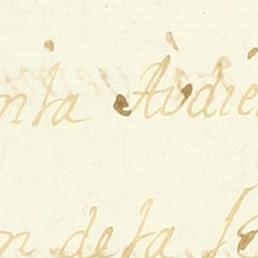 nta e Audien
n de la